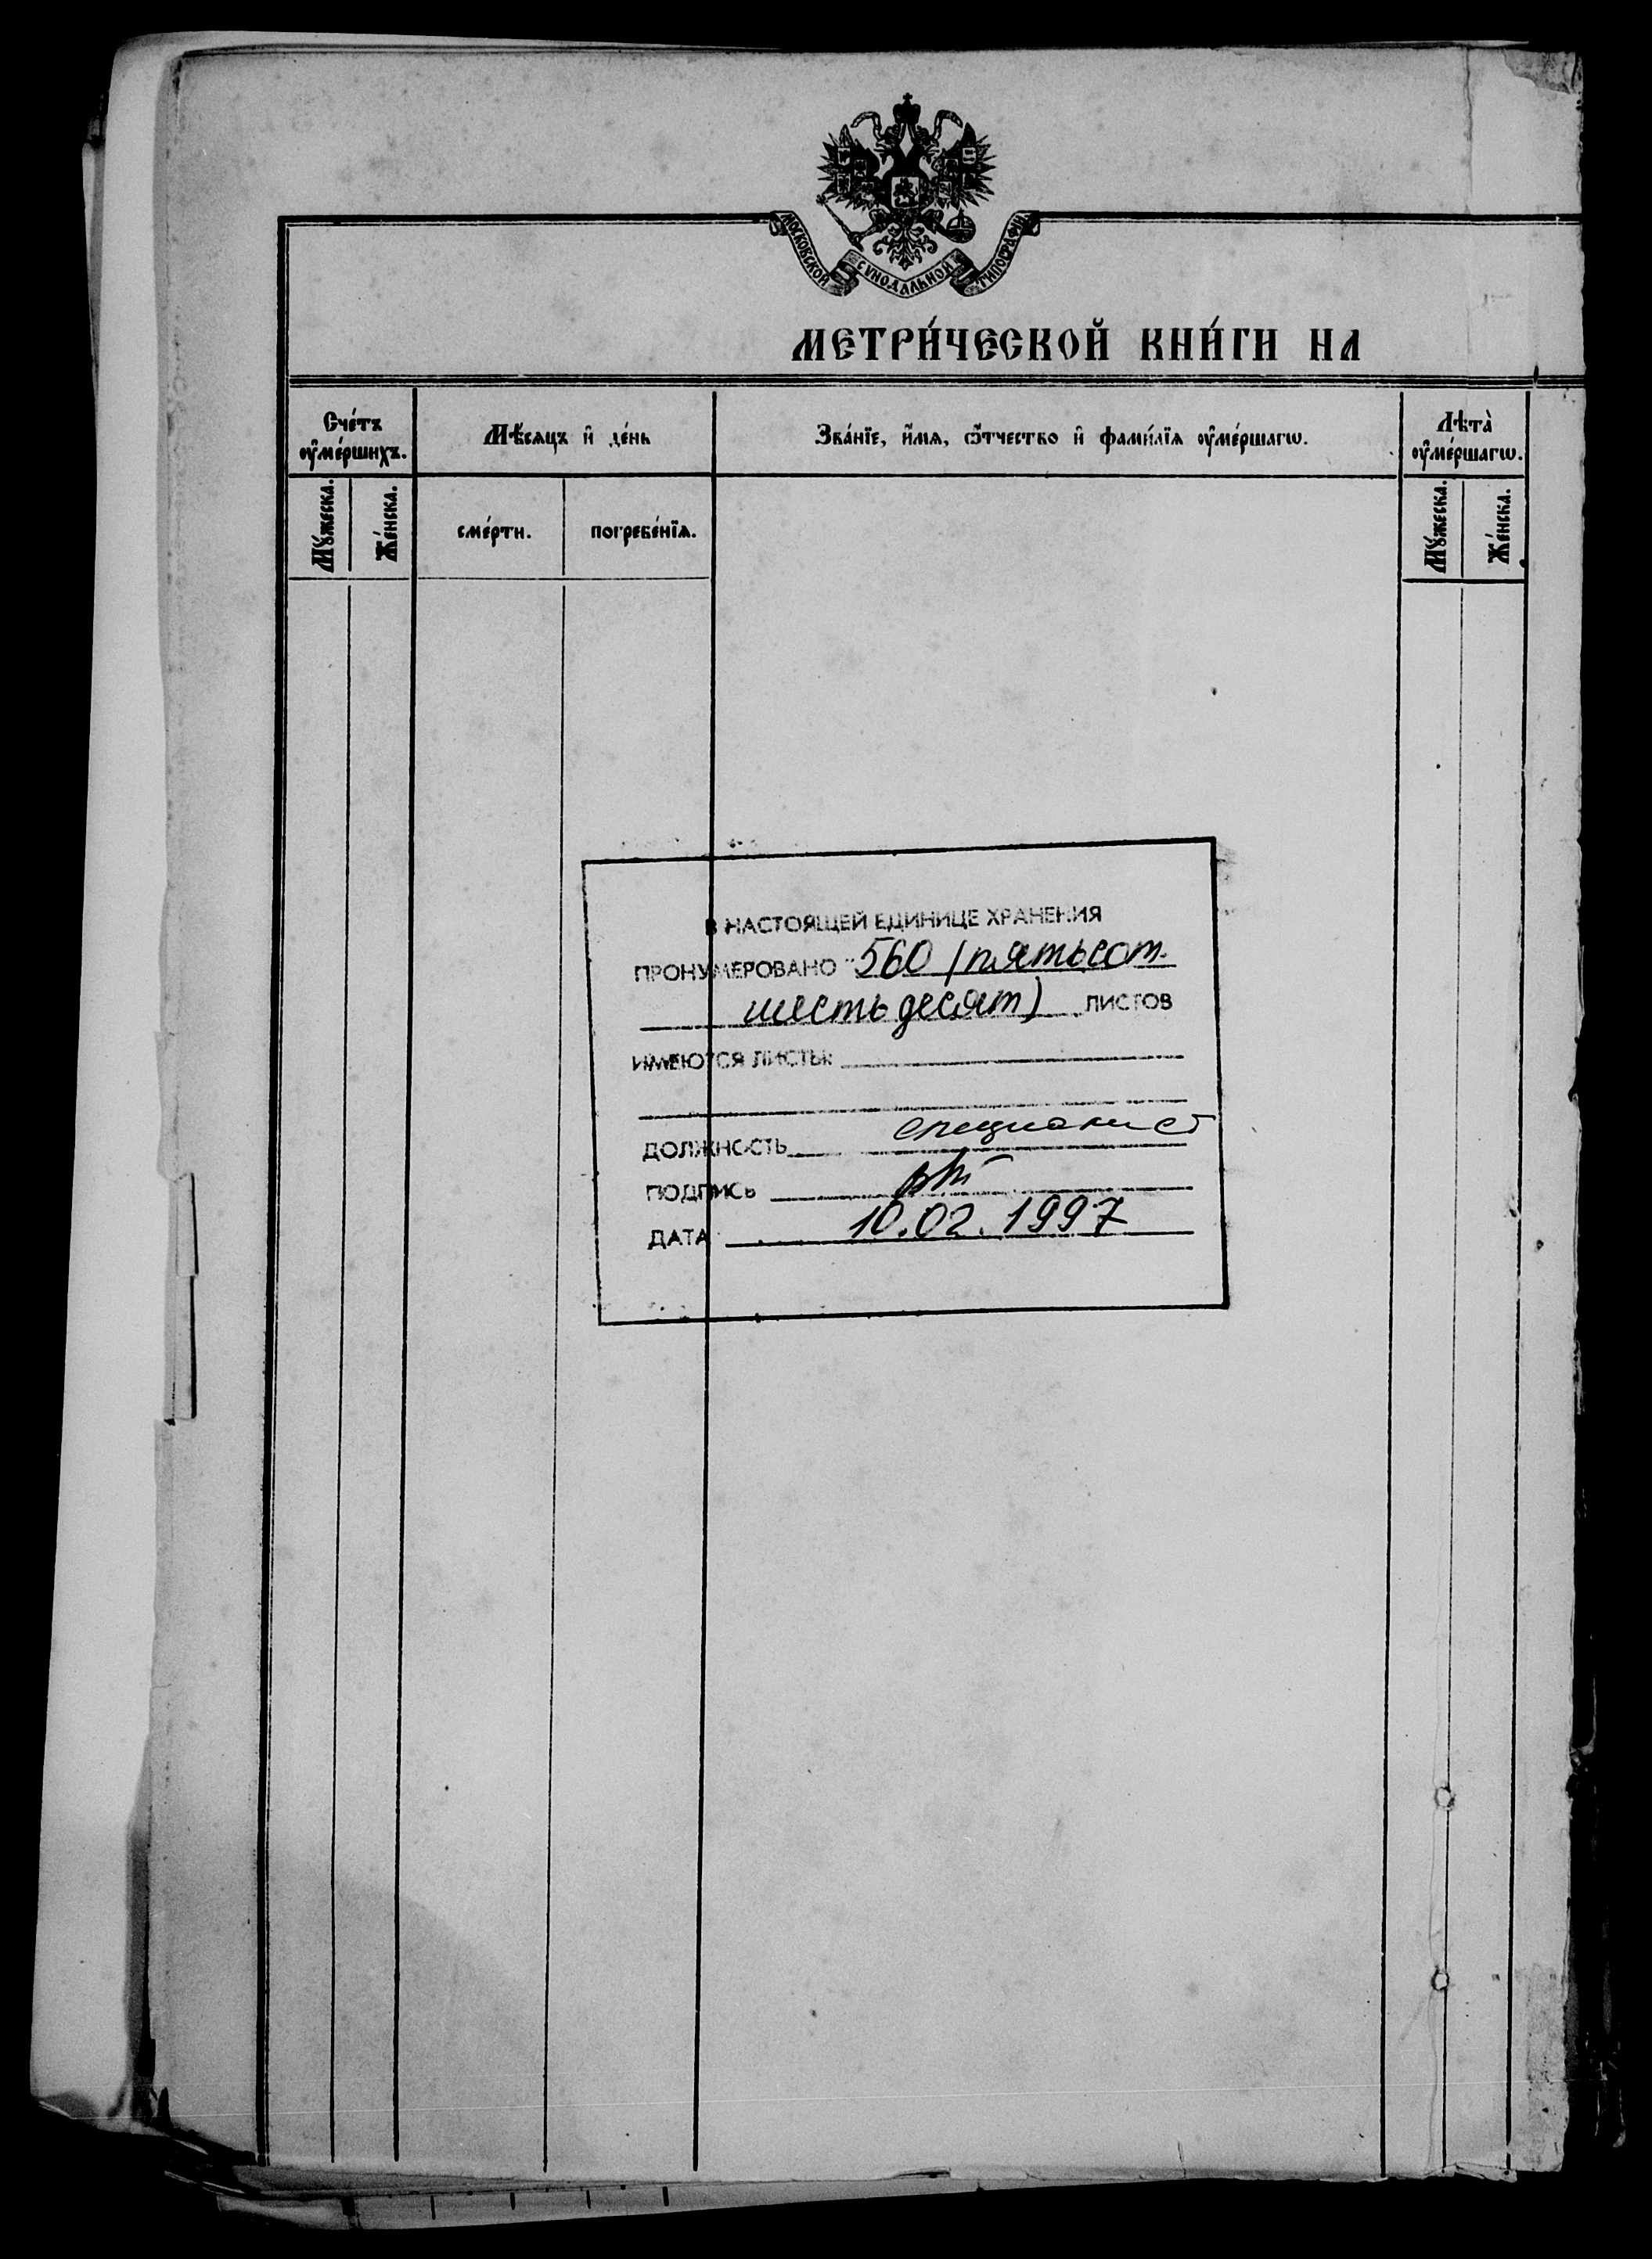 МОСКОВСКОЙ СѴНОДАЛЬНОЙ ТИПОГРАФІИ
МЕТРИ́ЧЕСКОЙ КНИ́ГИ НА
Сче́тъ
ᲂу҆ме́ршихъ.
Мѣ́сяцъ и҆ де́нь
Зва́нїе, и҆́мѧ, ѻ҆́тчество и҆ фами́лїѧ ᲂу҆ме́ршагѡ.
Лѣта̀
ᲂу҆ме́ршагѡ.
Мꙋ́жеска.
Же́нска.
сме́рти.
погребе́нїѧ.
Мꙋ́жеска.
Же́нска.
В НАСТОЯЩЕЙ ЕДИНИЦЕ ХРАНЕНИЯ
ПРОНУМЕРОВАНО 560 (пятьсот
шестьдесят) ЛИСТОВ
ИМЕЮТСЯ ЛИСТЫ:
ДОЛЖНОСТЬ специалист
ПОДПИСЬ
ДАТА 10.02.1997